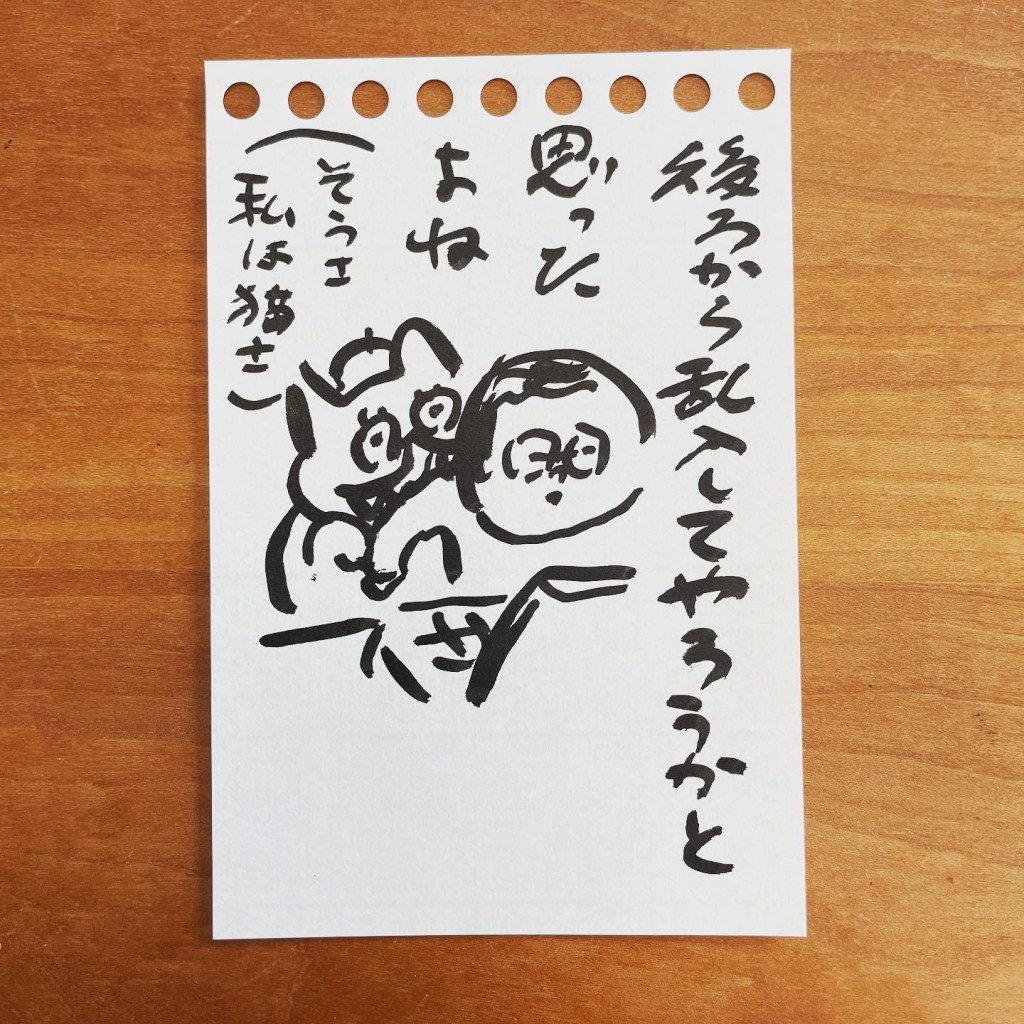 後ろから乱入してやろうかと
思った
よね
(そうさ
私は猫さ)